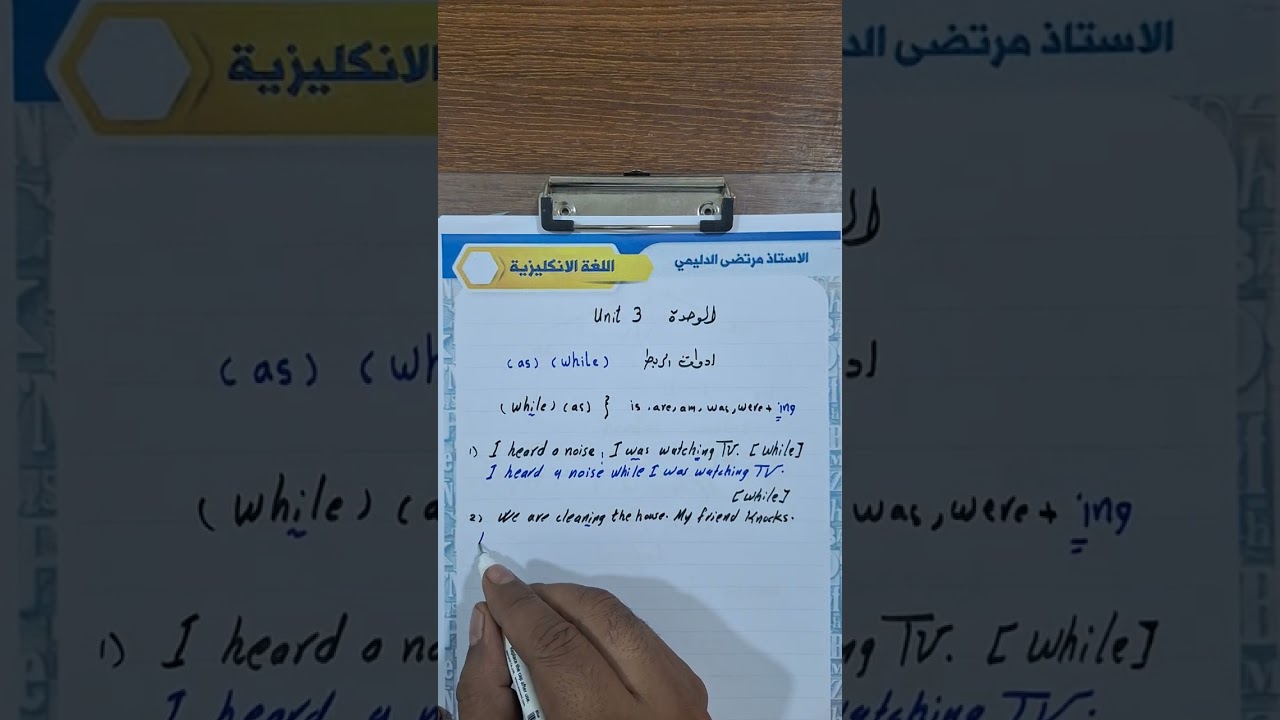 الاستاذ مرتضى الدليمي اللغة الانكليزية
Unit 3 الوحدة
(as) (while) ادوات الربط
(while) (as) } is, are, am, was, were + ing
1) I heard a noise. I was watching TV. [while]
I heard a noise while I was watching TV.
[while]
2) We are cleaning the house. My friend knocks.